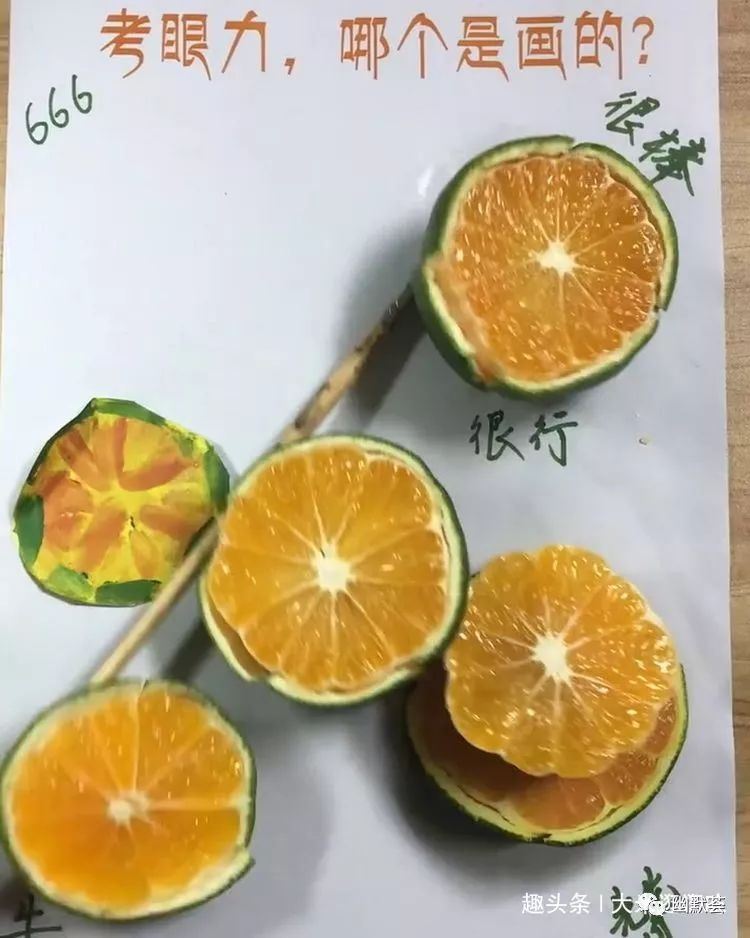 考眼力，哪个是画的？
666
很棒
很行
牛
趣头条
幽默荟